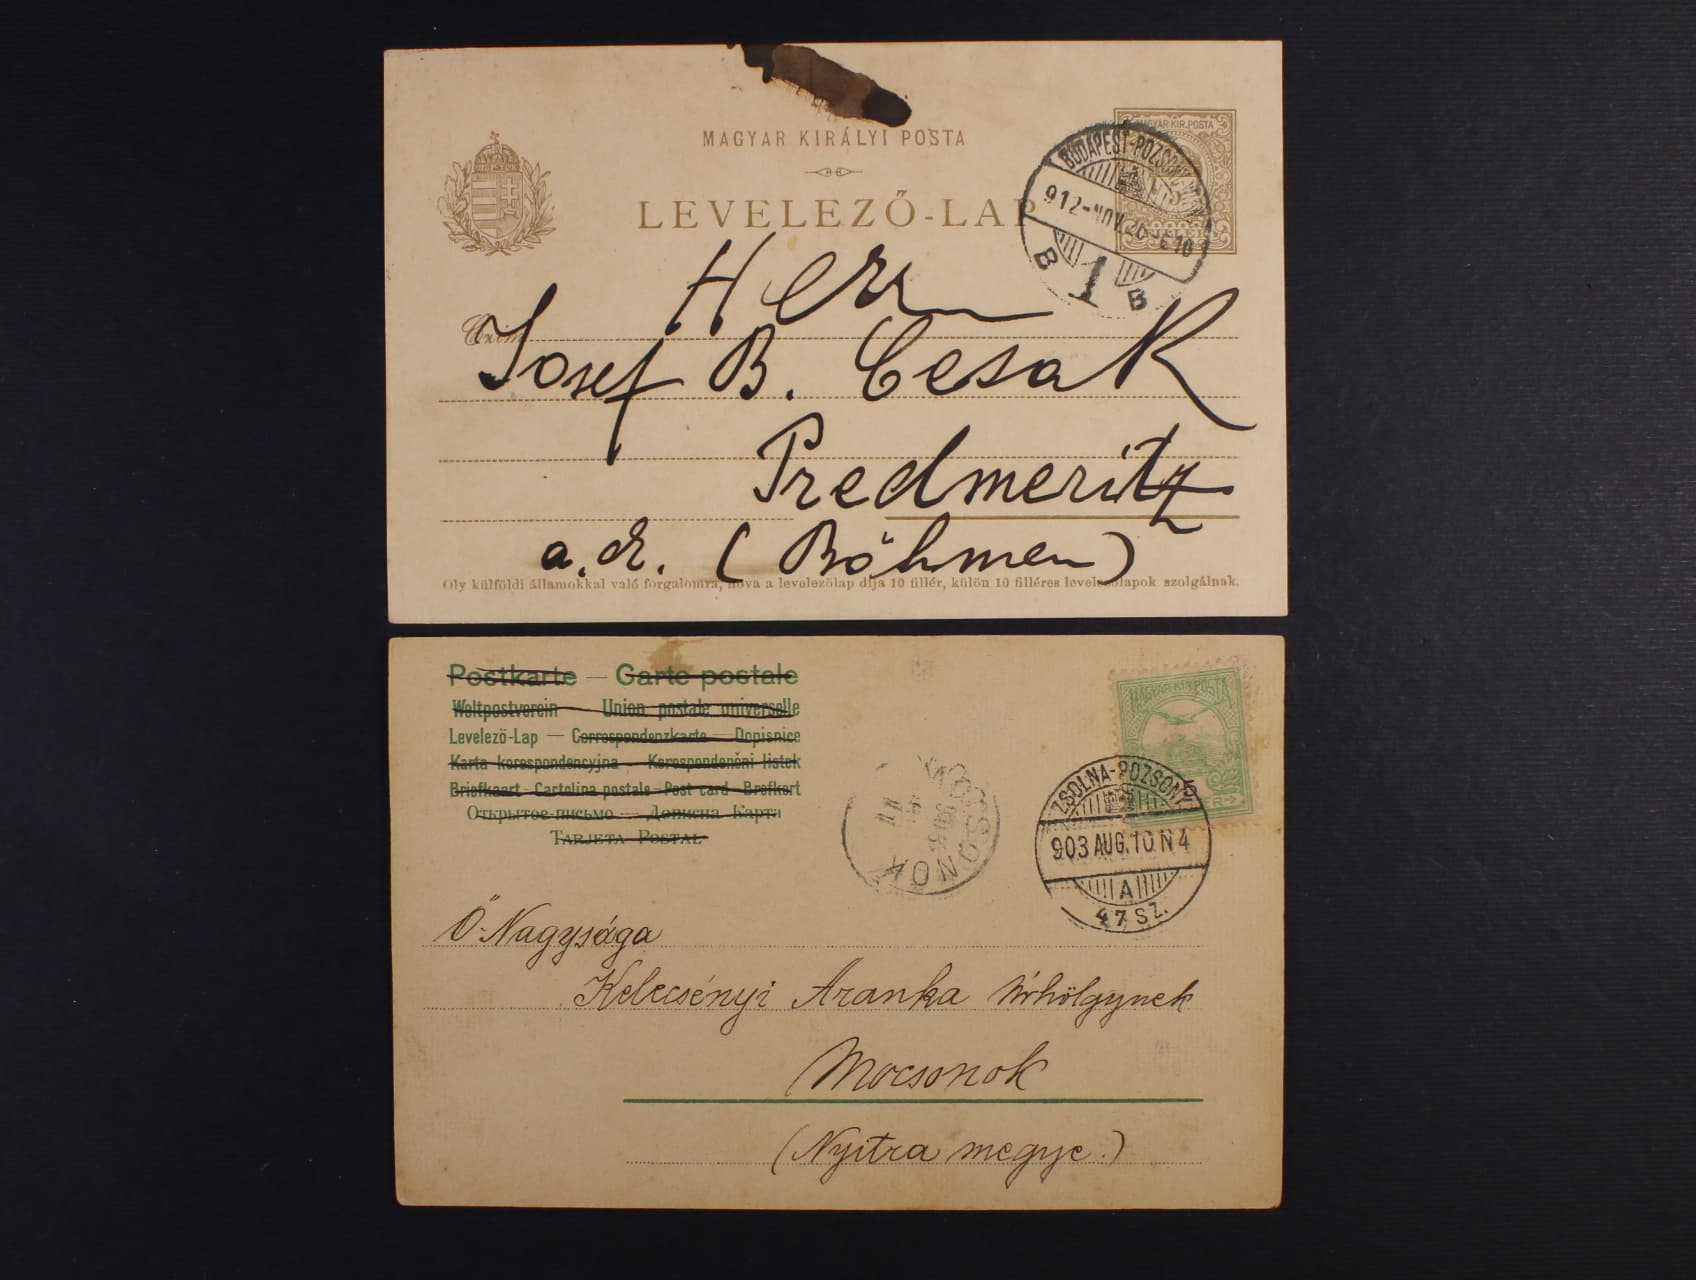 MAGYAR KIRÁLYI POSTA
LEVELEZŐ-LAP
MAGYAR KIR. POSTA
BUDAPEST-POZSONY
912-NOV. 26
B 1 B
Herrn
Josef B. Cesak
Predmeritz
a. E. (Böhmen)
Oly külföldi államokkal való forgalomra, hova a levelezőlap díja 10 fillér, külön 10 filléres levelezőlapok szolgálnak.
Postkarte — Carte postale
Weltpostverein — Union postale universelle
Levelező-Lap — Correspondenzkarte — Dopisnice
Karta korespondencyjna — Korespondenční listek
Briefkaart — Cartolina postale — Post card — Brefkort
Открытое письмо — Дописна Карта
TARJETA POSTAL
MAGYAR KIR. POSTA
ZSOLNA-POZSONY
903 AUG. 10 N 4
A
47 SZ.
Ő Nagysága
Kelecsényi Aranka Úrhölgynek
Mocsonok
(Nyitra megye.)